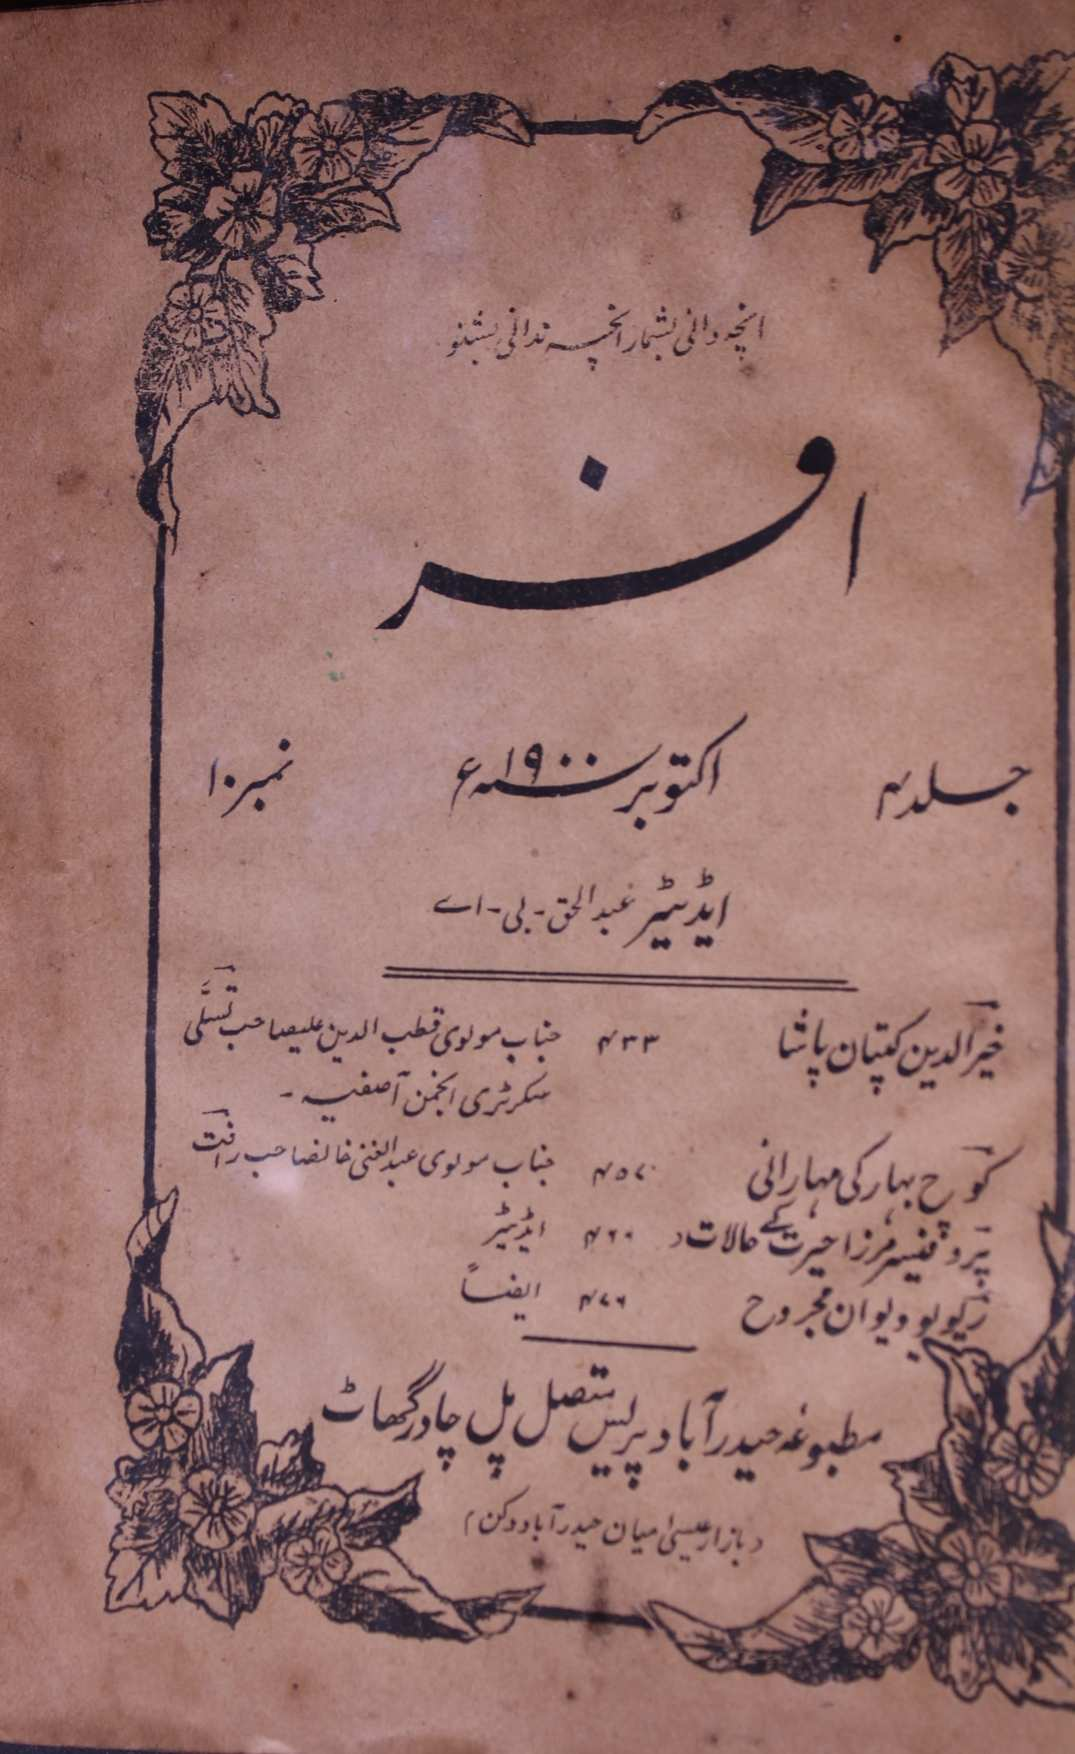 انچہ دانی بشمار انچہ ندانی بشنو
افسر
جلد ۴ اکتوبر سنہ ۱۹۰۰ء نمبر ۱۰
ایڈیٹر عبدالحق - بی - اے
خیرالدین کپتان پاشا ۴۳۳ جناب مولوی قطب الدین علیصاحب تسلّی
سکرٹری انجمن آصفیہ -
کوچ بہار کی مہارانی ۴۵۷ جناب مولوی عبدالغنی خانصاحب رافت
پروفیسر مرزا حیرت کے حالات ۴۶۰ ایڈیٹر
ریویو دیوان مجروح ۴۷۶ ایضاً
مطبوعہ حیدرآباد پریس متصل پل چادرگھاٹ
(بازار عیسیٰ میان حیدرآباد دکن)